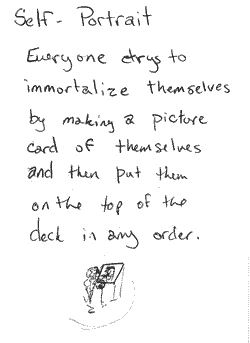 Self-Portrait
Everyone trys to
immortalize themselves
by making a picture
card of themselves
and then put them
on the top of the
deck in any order.